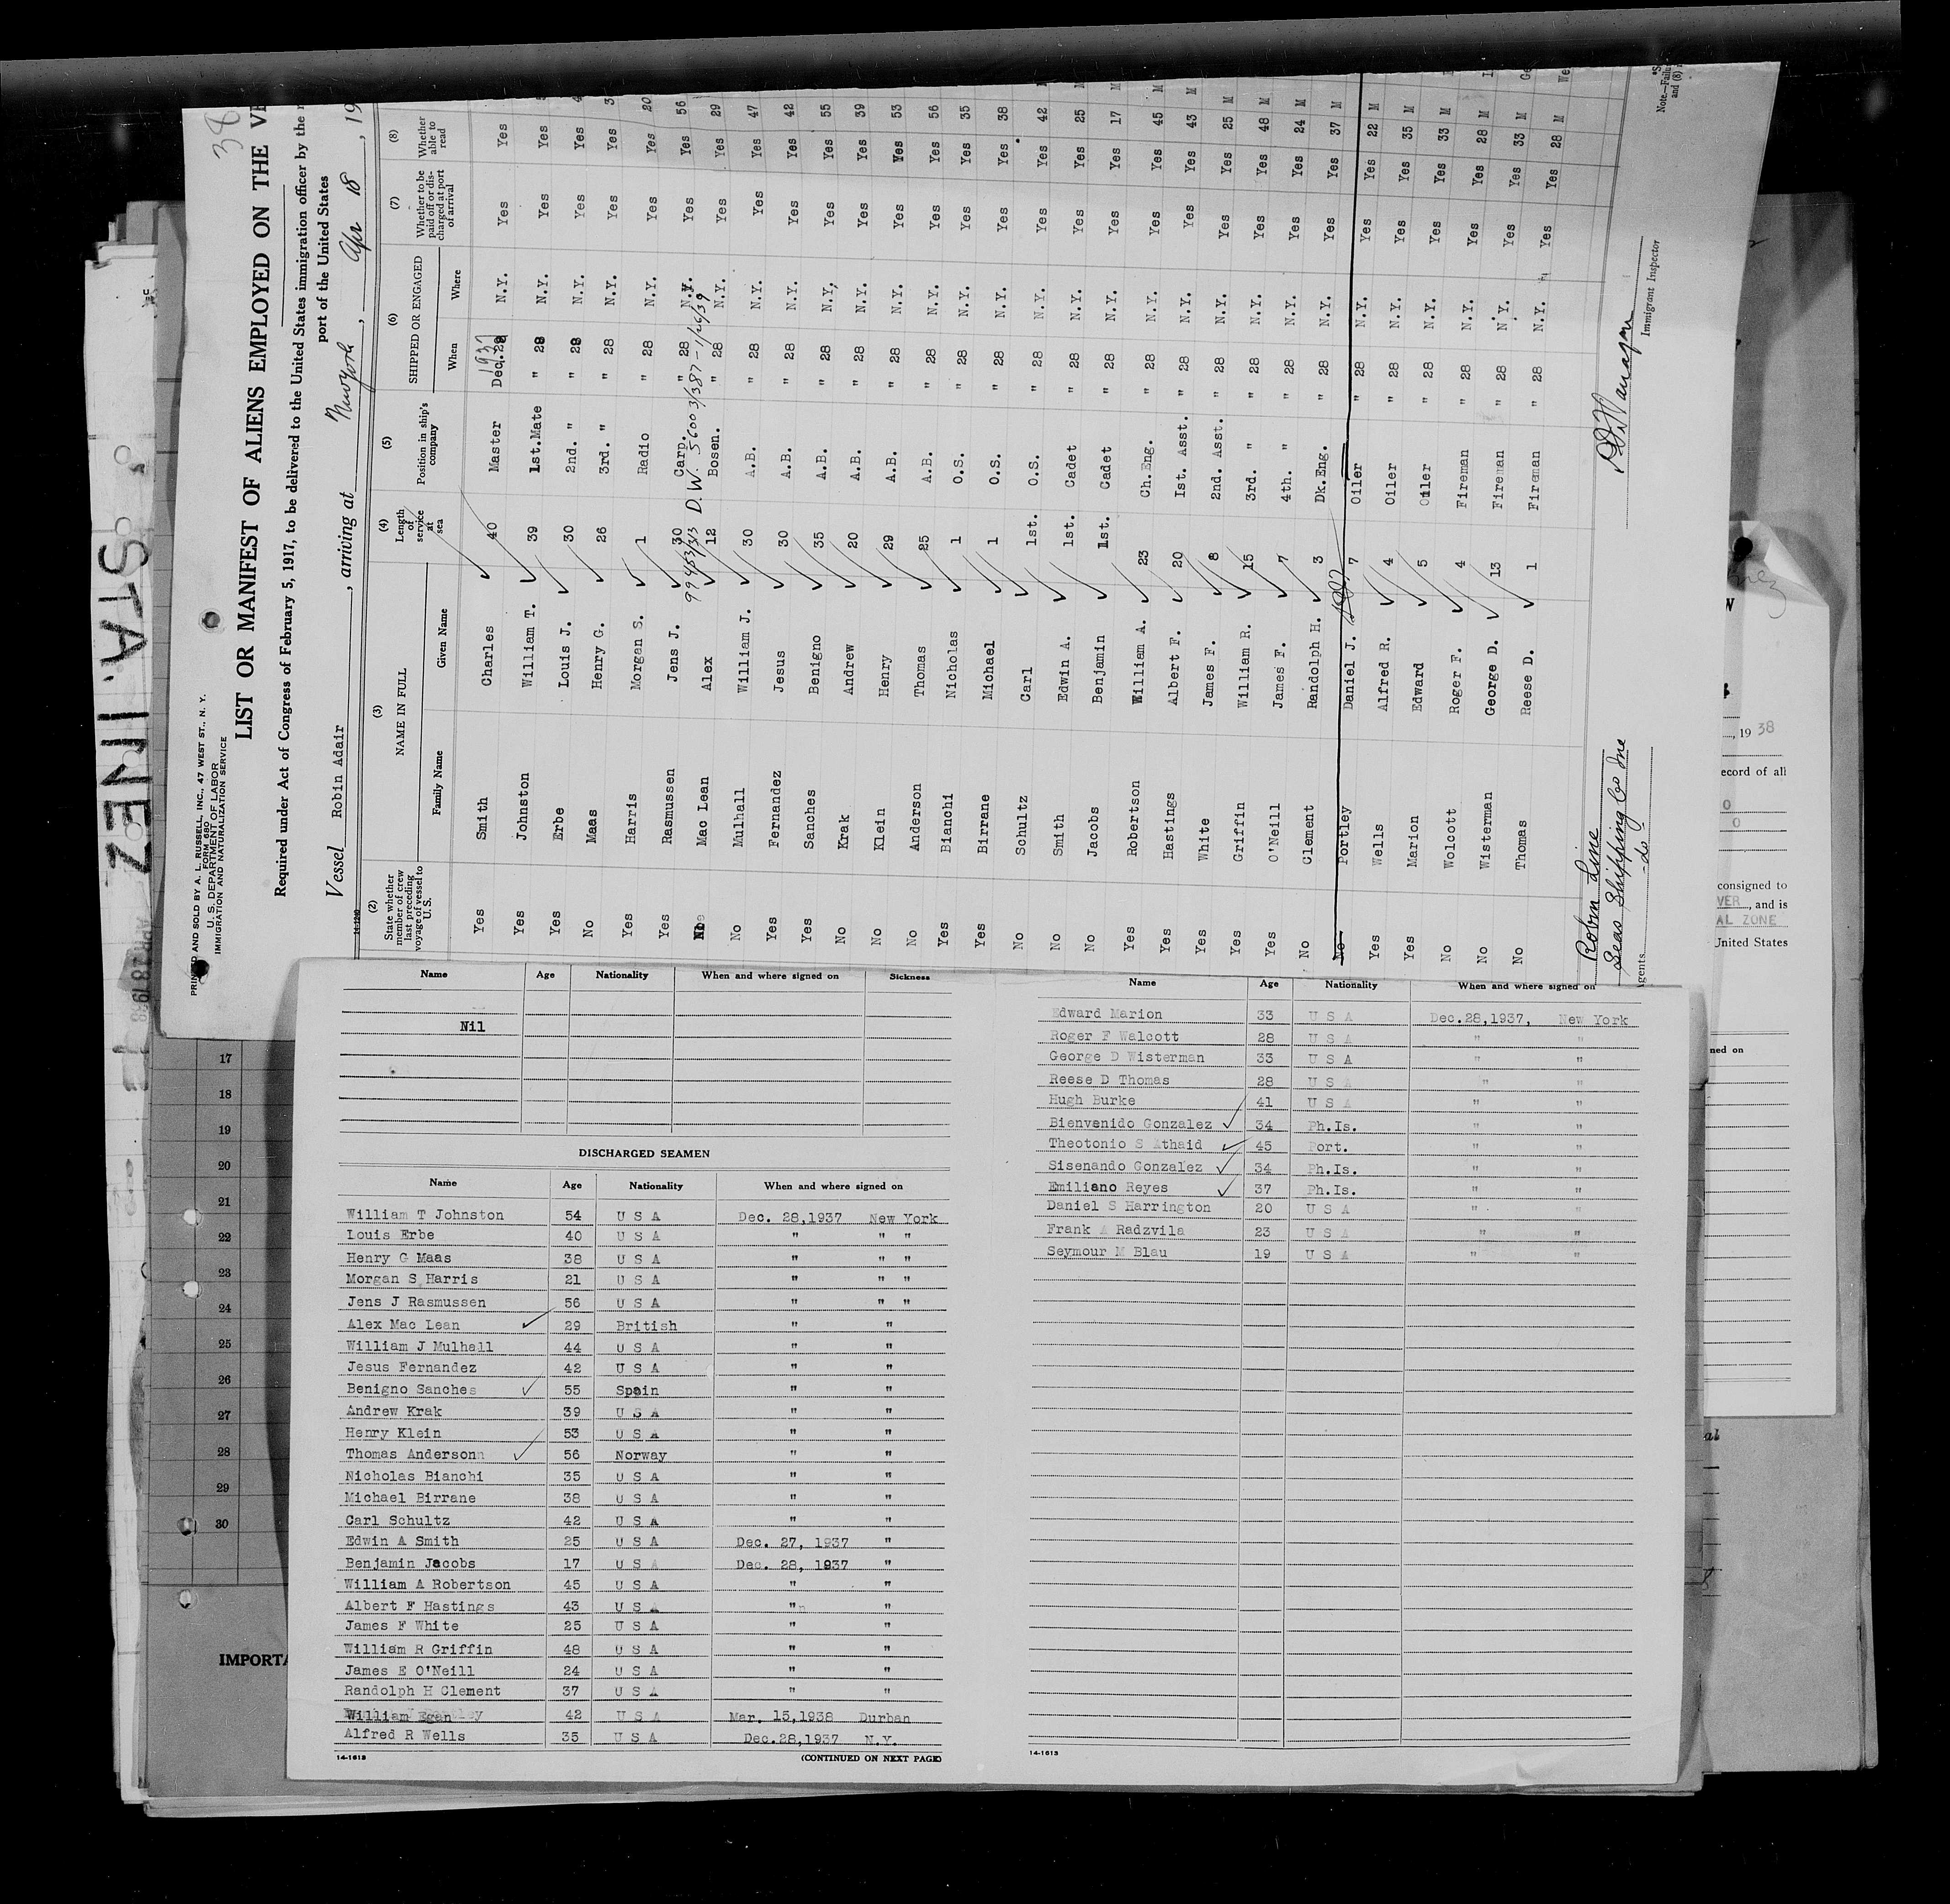 38
PRINTED AND SOLD BY A. L. RUSSELL, INC., 47 WEST ST., N. Y.
FORM 680
U. S. DEPARTMENT OF LABOR
IMMIGRATION AND NATURALIZATION SERVICE
LIST OR MANIFEST OF ALIENS EMPLOYED ON THE VE
Required under Act of Congress of February 5, 1917, to be delivered to the United States immigration officer by the
port of the United States
Vessel Robin Adair, arriving at New York, Apr 18, 19
(2) (3) (4) (5) (6) (7) (8)
State whether member of crew last preceding voyage of vessel to U.S. NAME IN FULL Family Name Given Name Length of service at sea Position in ship's company SHIPPED OR ENGAGED When Where Whether to be paid off or discharged at port of arrival Whether able to read
1937
Yes Smith Charles 40 Master Dec. 28 N.Y. Yes Yes
Yes Johnston William T. 39 1st.Mate " 28 N.Y. Yes Yes
Yes Erbe Louis J. 30 2nd. " " 28 N.Y. Yes Yes
No Maas Henry G. 26 3rd. " " 28 N.Y. Yes Yes
Yes Harris Morgan S. 1 Radio " 28 N.Y. Yes Yes 20
Yes Rasmussen Jens J. 30 Carp. " 28 N.Y. Yes Yes 56
99453/313 D.W. 56003/387 - 1/26/39
No Mac Lean Alex 12 Bosen. " 28 N.Y. Yes Yes 29
No Mulhall William J. 30 A.B. " 28 N.Y. Yes Yes 47
Yes Fernandez Jesus 30 A.B. " 28 N.Y. Yes Yes 42
Yes Sanches Benigno 35 A.B. " 28 N.Y. Yes Yes 55
No Krak Andrew 20 A.B. " 28 N.Y. Yes Yes 39
No Klein Henry 29 A.B. " 28 N.Y. Yes Yes 53
No Anderson Thomas 25 A.B. " 28 N.Y. Yes Yes 56
Yes Bianchi Nicholas 1 O.S. " 28 N.Y. Yes Yes 35
Yes Birrane Michael 1 O.S. " 28 N.Y. Yes Yes 38
No Schultz Carl 1st. O.S. " 28 N.Y. Yes Yes 42
No Smith Edwin A. 1st. Cadet " 28 N.Y. Yes Yes 25
No Jacobs Benjamin 1st. Cadet " 28 N.Y. Yes Yes 17 M
Yes Robertson William A. 23 Ch.Eng. " 28 N.Y. Yes Yes 45 M
Yes Hastings Albert F. 20 1st. Asst. " 28 N.Y. Yes Yes 43 M
Yes White James F. 8 2nd. Asst. " 28 N.Y. Yes Yes 25 M
Yes Griffin William R. 15 3rd. " " 28 N.Y. Yes Yes 48 M
Yes O'Neill James F. 7 4th. " " 28 N.Y. Yes Yes 24 M
No Clement Randolph H. 3 Dk.Eng. " 28 N.Y. Yes Yes 37 M
No Portley Daniel J. 7 Oiler " 28 N.Y. Yes Yes 22 M
Yes Wells Alfred R. 4 Oiler " 28 N.Y. Yes Yes 35 M
Yes Marion Edward 5 Oiler " 28 N.Y. Yes Yes 33 M
No Wolcott Roger F. 4 Fireman " 28 N.Y. Yes Yes 28 M
No Wisterman George D. 13 Fireman " 28 N.Y. Yes Yes 33 M
No Thomas Reese D. 1 Fireman " 28 N.Y. Yes Yes 28 M
Robin Line
Seas Shipping Co Inc
-do-
gents
Immigrant Inspector
Note.—Failu
and (8)
STA. INEZ
Name Age Nationality When and where signed on Sickness
Nil
DISCHARGED SEAMEN
Name Age Nationality When and where signed on
William T Johnston 54 U S A Dec. 28,1937 New York
Louis Erbe 40 U S A " " "
Henry G Maas 38 U S A " " "
Morgan S Harris 21 U S A " " "
Jens J Rasmussen 56 U S A " " "
Alex Mac Lean 29 British " "
William J Mulhall 44 U S A " "
Jesus Fernandez 42 U S A " "
Benigno Sanches 55 Spain " "
Andrew Krak 39 U S A " "
Henry Klein 53 U S A " "
Thomas Andersonn 56 Norway " "
Nicholas Bianchi 35 U S A " "
Michael Birrane 38 U S A " "
Carl Schultz 42 U S A " "
Edwin A Smith 25 U S A Dec. 27, 1937 "
Benjamin Jacobs 17 U S A Dec. 28, 1937 "
William A Robertson 45 U S A " "
Albert F Hastings 43 U S A " "
James F White 25 U S A " "
William R Griffin 48 U S A " "
James E O'Neill 24 U S A " "
Randolph H Clement 37 U S A " "
William Egan 42 U S A Mar. 15,1938 Durban
Alfred R Wells 35 U S A Dec.28,1937 N.Y.
14-1613 (CONTINUED ON NEXT PAGE)
Name Age Nationality When and where signed on
Edward Marion 33 U S A Dec.28,1937, New York
Roger F Walcott 28 U S A " "
George D Wisterman 33 U S A " "
Reese D Thomas 28 U S A " "
Hugh Burke 41 U S A " "
Bienvenido Gonzalez 34 Ph.Is. " "
Theotonio S Athaid 45 Port. " "
Sisenando Gonzalez 34 Ph.Is. " "
Emiliano Reyes 37 Ph.Is. " "
Daniel S Harrington 20 U S A " "
Frank A Radzvila 23 U S A " "
Seymour M Blau 19 U S A " "
14-1613
17
18
19
20
21
22
23
24
25
26
27
28
29
30
IMPORTA
, 19 38
ecord of all
consigned to
VER, and is
AL ZONE
United States
ned on